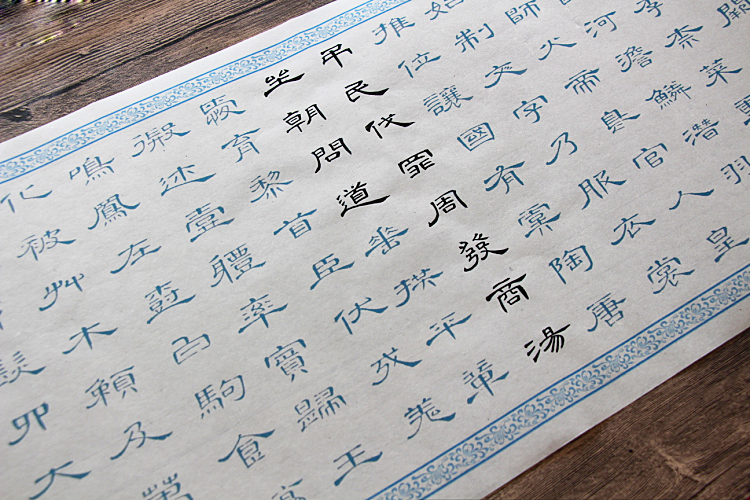 闕
李柰菜重
河淡鱗潛羽
師火帝鳥官人皇
始制文字乃服衣裳
推位讓國有虞陶唐
吊民伐罪周發商湯
坐朝問道垂拱平章
愛育黎首臣伏戎羌
遐邇壹體率賓歸王
鳴鳳在樹白駒食場
化被艸木賴及萬
髮四大